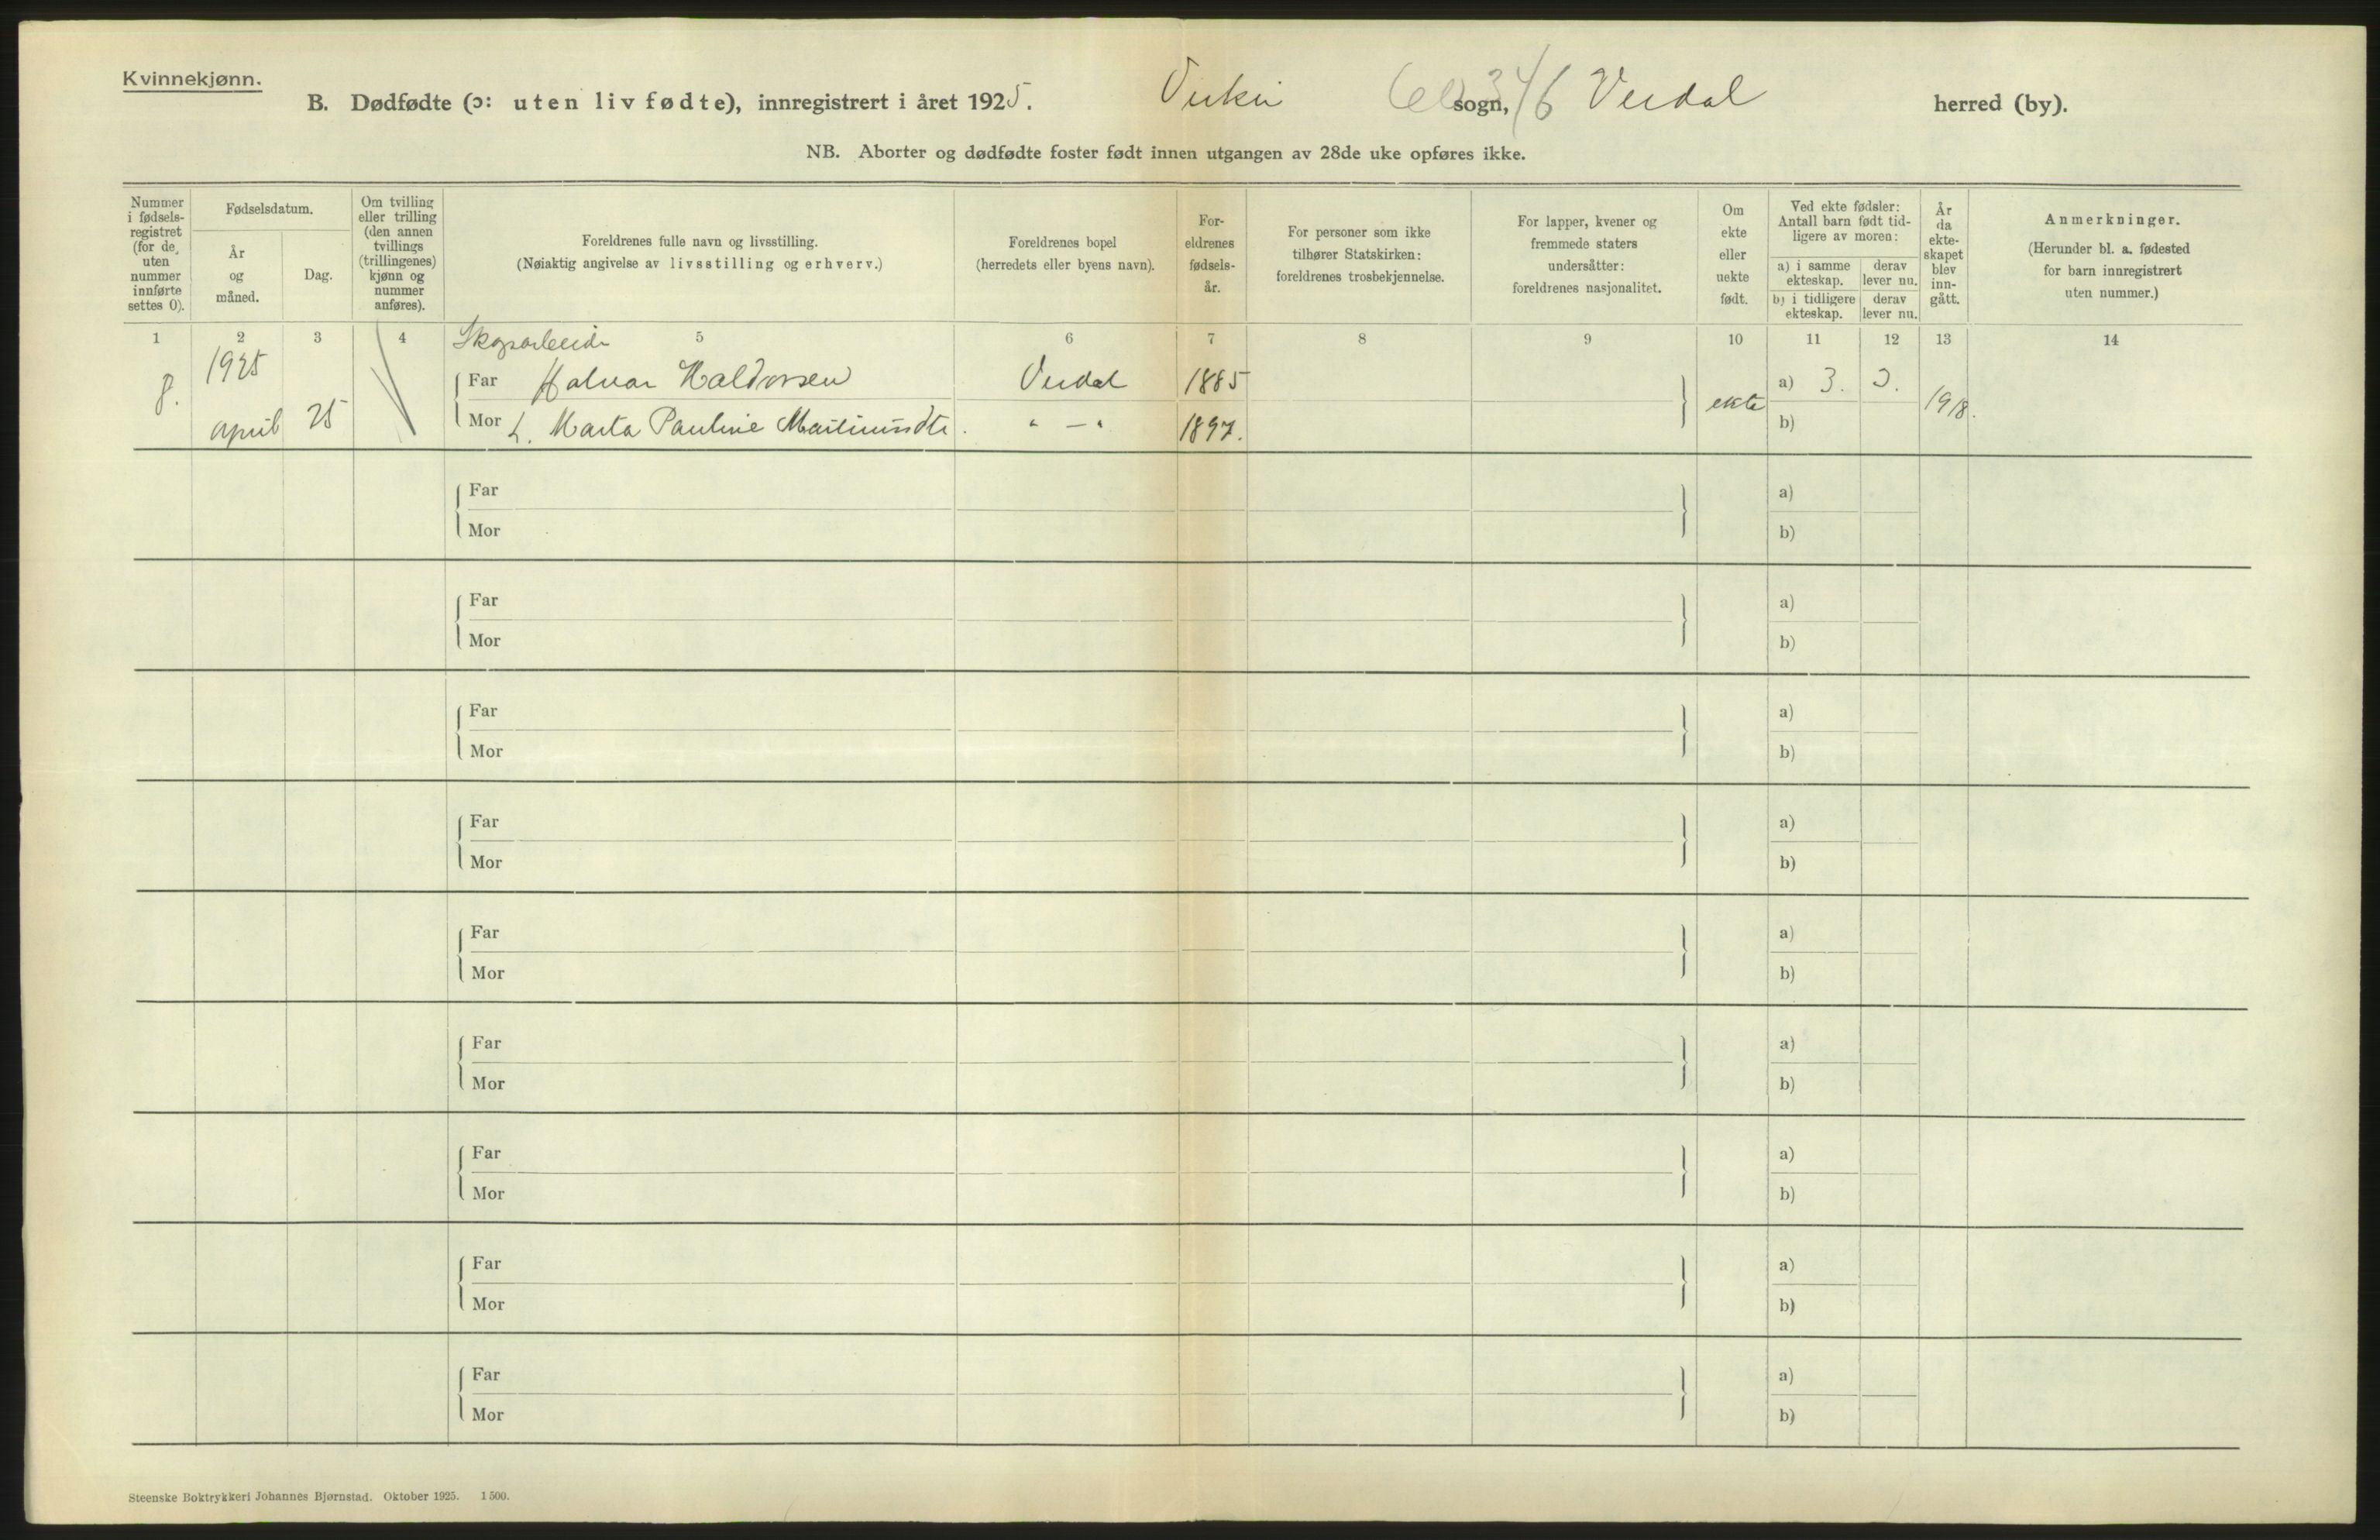 Kvinnekjønn.
B. Dødfødte (ɔ: uten liv fødte), innregistrert i året 1925. sogn, Verdal herred (by).
NB. Aborter og dødfødte foster født innen utgangen av 28de uke opføres ikke.
Nummer
i fødsels-
registret
(for de
uten
nummer
innførte
settes 0).
Fødselsdatum.
År
og
måned.
Dag.
Om tvilling
eller trilling
(den annen
tvillings
(trillingenes)
kjønn og
nummer
anføres).
Foreldrenes fulle navn og livsstilling.
(Nøiaktig angivelse av livsstilling og erhverv.)
Foreldrenes bopel
(herredets eller byens navn).
For-
eldrenes
fødsels-
år.
For personer som ikke
tilhører Statskirken:
foreldrenes trosbekjennelse.
For lapper, kvener og
fremmede staters
undersåtter:
foreldrenes nasjonalitet.
Om
ekte
eller
uekte
født.
Ved ekte fødsler:
Antall barn født tid-
ligere av moren:
a) i samme
ekteskap.
derav
lever nu.
b) i tidligere
ekteskap.
derav
lever nu.
År
da
ekte-
skapet
blev
inn-
gått.
Anmerkninger.
(Herunder bl. a. fødested
for barn innregistrert
uten nummer.)
1 2 3 4 5 6 7 8 9 10 11 12 13 14
8. 1925 april 25
Skogsarbeider
Far Halvar Haldorsen Verdal 1885
Mor h. Marta Pauline " — " 1897.
ekte a) 3. 3. 1918.
b)
Far a)
Mor b)
Far a)
Mor b)
Far a)
Mor b)
Far a)
Mor b)
Far a)
Mor b)
Far a)
Mor b)
Far a)
Mor b)
Far a)
Mor b)
Far a)
Mor b)
Steenske Boktrykkeri Johannes Bjørnstad. Oktober 1925. 1500.